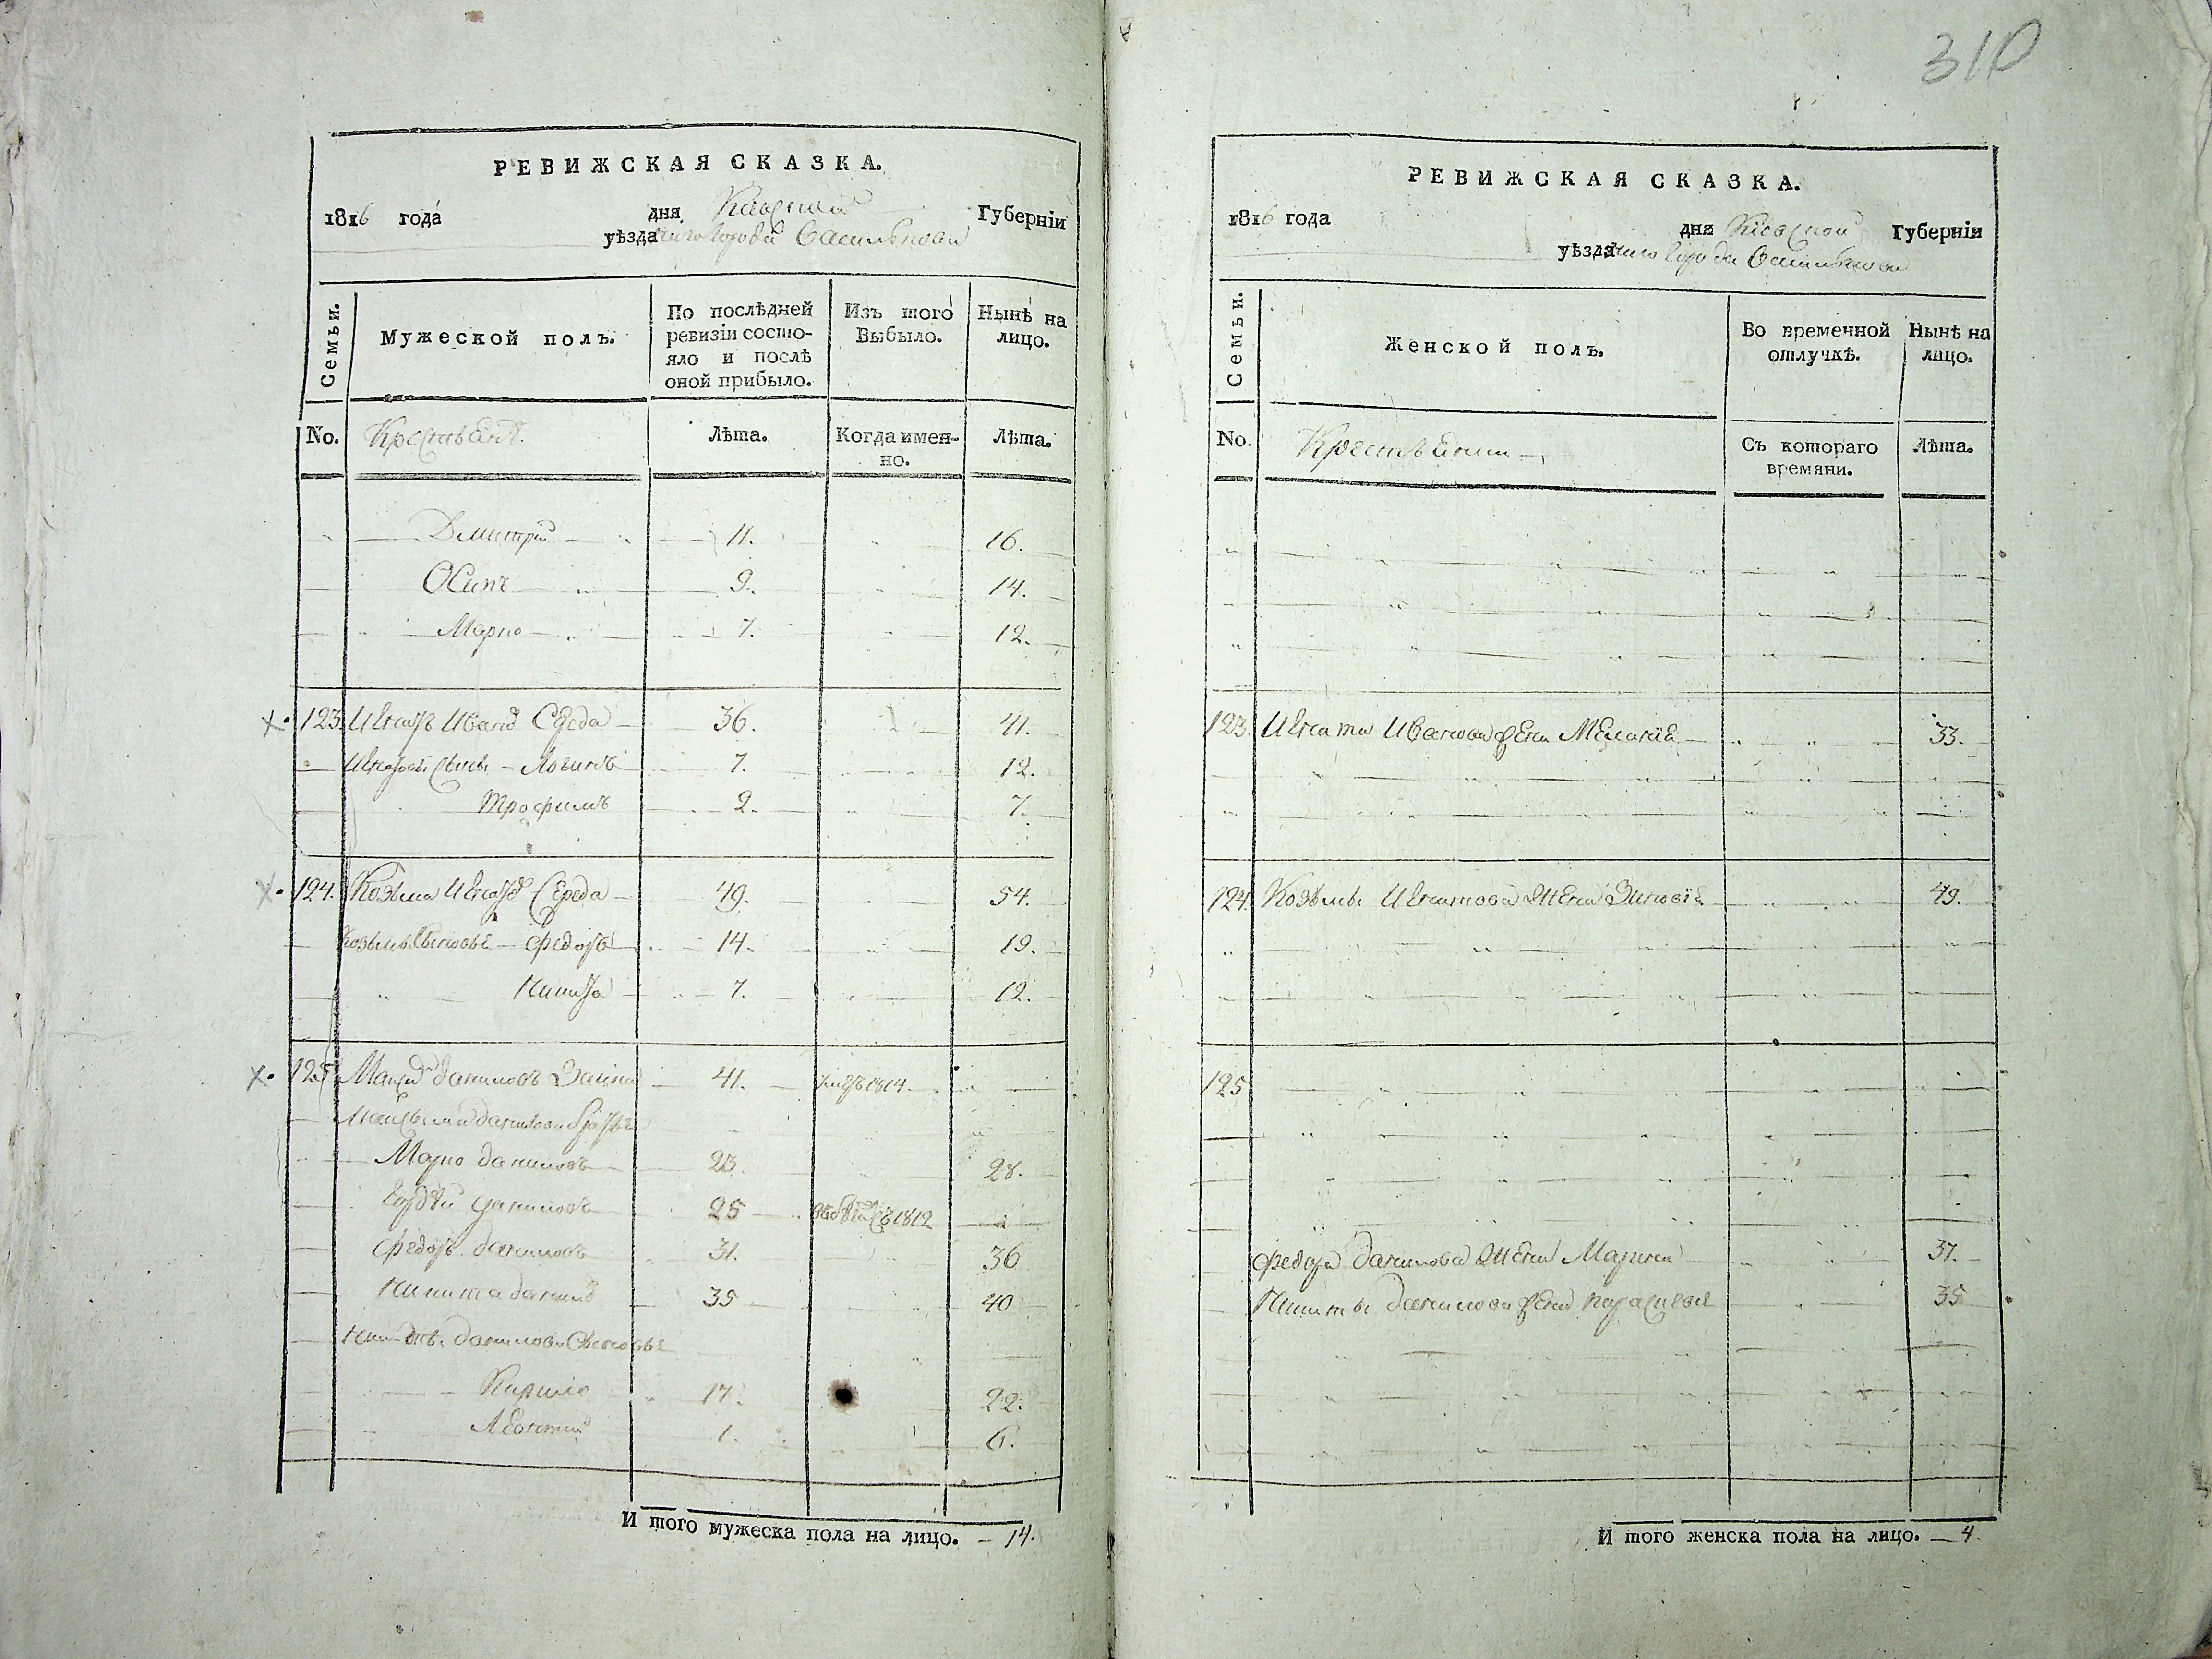 310
РЕВИЖСКАЯ СКАЗКА.
1816 года дня Киевской Губерніи
уѣзда города Василькова
Семьи. Мужеской полъ. По послѣдней ревизіи состояло и послѣ оной прибыло. Изъ того Выбыло. Нынѣ на лицо.
No. Крестьянѣ. Лѣта. Когда именно. Лѣта.
Дмитрій 11. 16.
Осипъ 9. 14.
Марко 7. 12.
123. Игнатъ Иванов Середа 36. 41.
Логинъ 7. 12.
Трофимъ 2. 7.
124. Козьма Игнатов Середа 49. 54.
Козьмы Сыновье Федоръ 14. 19.
Никита 7. 12.
125 Даниловъ 41. 1814.
Данилова братья
Марко Даниловъ 23. 28.
Гордѣй Даниловъ 25 1812
Федоръ Даниловъ 31. 36
Никита Данилов 35 40
Никиты Данилова Сыновье
Кирило 17. 22.
Леонтий 1. 6.
И того мужеска пола на лицо. — 14.
РЕВИЖСКАЯ СКАЗКА.
1816 года дня Кіевской Губерніи
уѣзда города Василькова
Семьи. Женской полъ. Во времечной отлучкѣ. Нынѣ на лицо.
No. Съ котораго времяни. Лѣта.
123. Игната Иванова жена Меланія 33.
124. Козьмы Игнатова жена Зиновія 49.
125
Федора Данилова жена Марина 31.
Никиты Данилова жена Парасковя 35
И того женска пола на лицо. — 4.